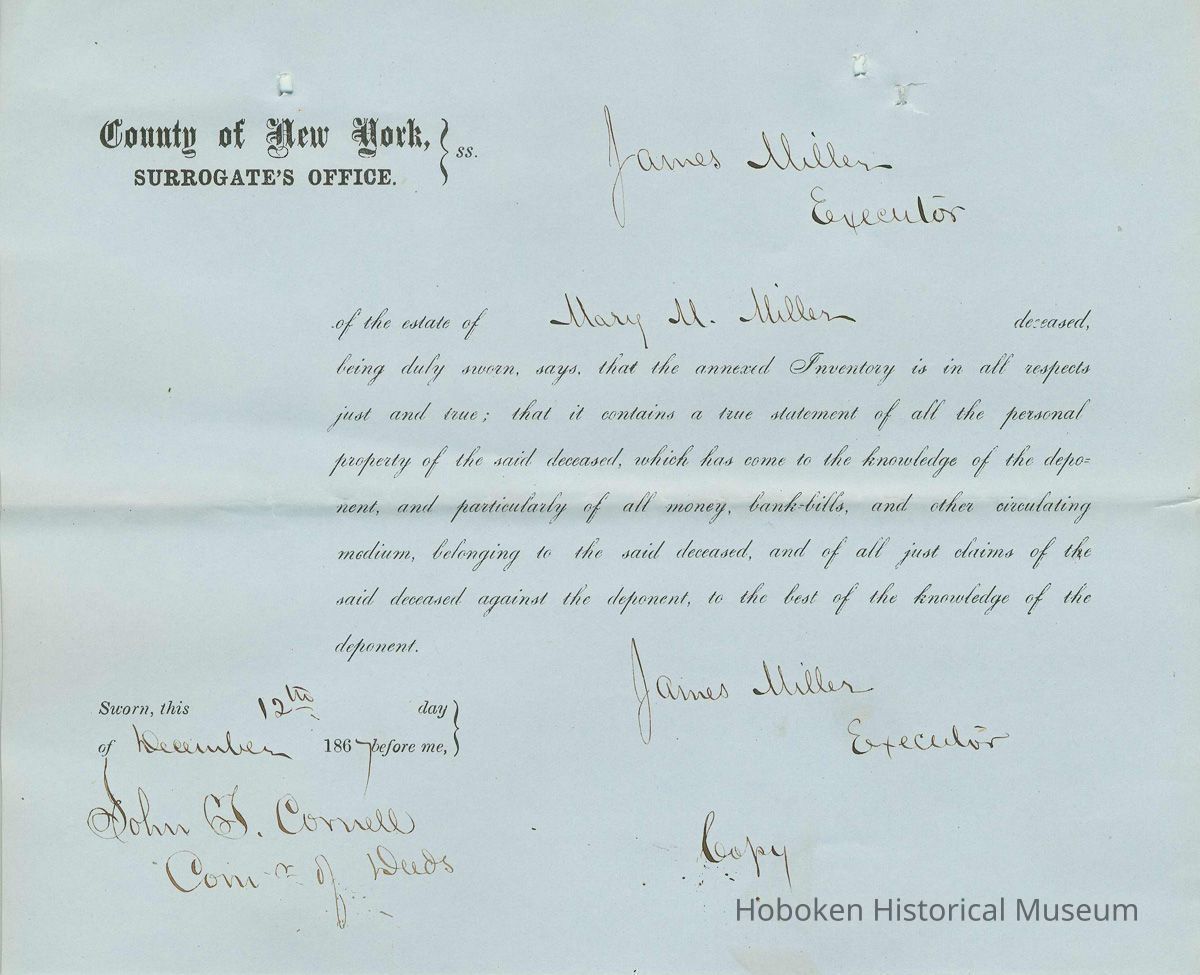 County of New York, } ss.
SURROGATE'S OFFICE.
James Miller
Executor
of the estate of Mary M. Miller deceased,
being duly sworn, says, that the annexed Inventory is in all respects
just and true; that it contains a true statement of all the personal
property of the said deceased, which has come to the knowledge of the depo=
nent, and particularly of all money, bank-bills, and other circulating
medium, belonging to the said deceased, and of all just claims of the
said deceased against the deponent, to the best of the knowledge of the
deponent.
James Miller
Executor
Sworn, this 12th day
of December 1867 before me, }
John G. Cornell
Comr of Deeds
Copy
Hoboken Historical Museum